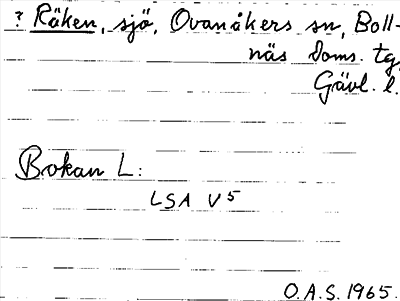 ? Räken, sjö, Ovanåkers sn, Boll-
näs Doms. tg,
Gävl. l.
Bokan L:
LSA V 5
O.A.S. 1965.